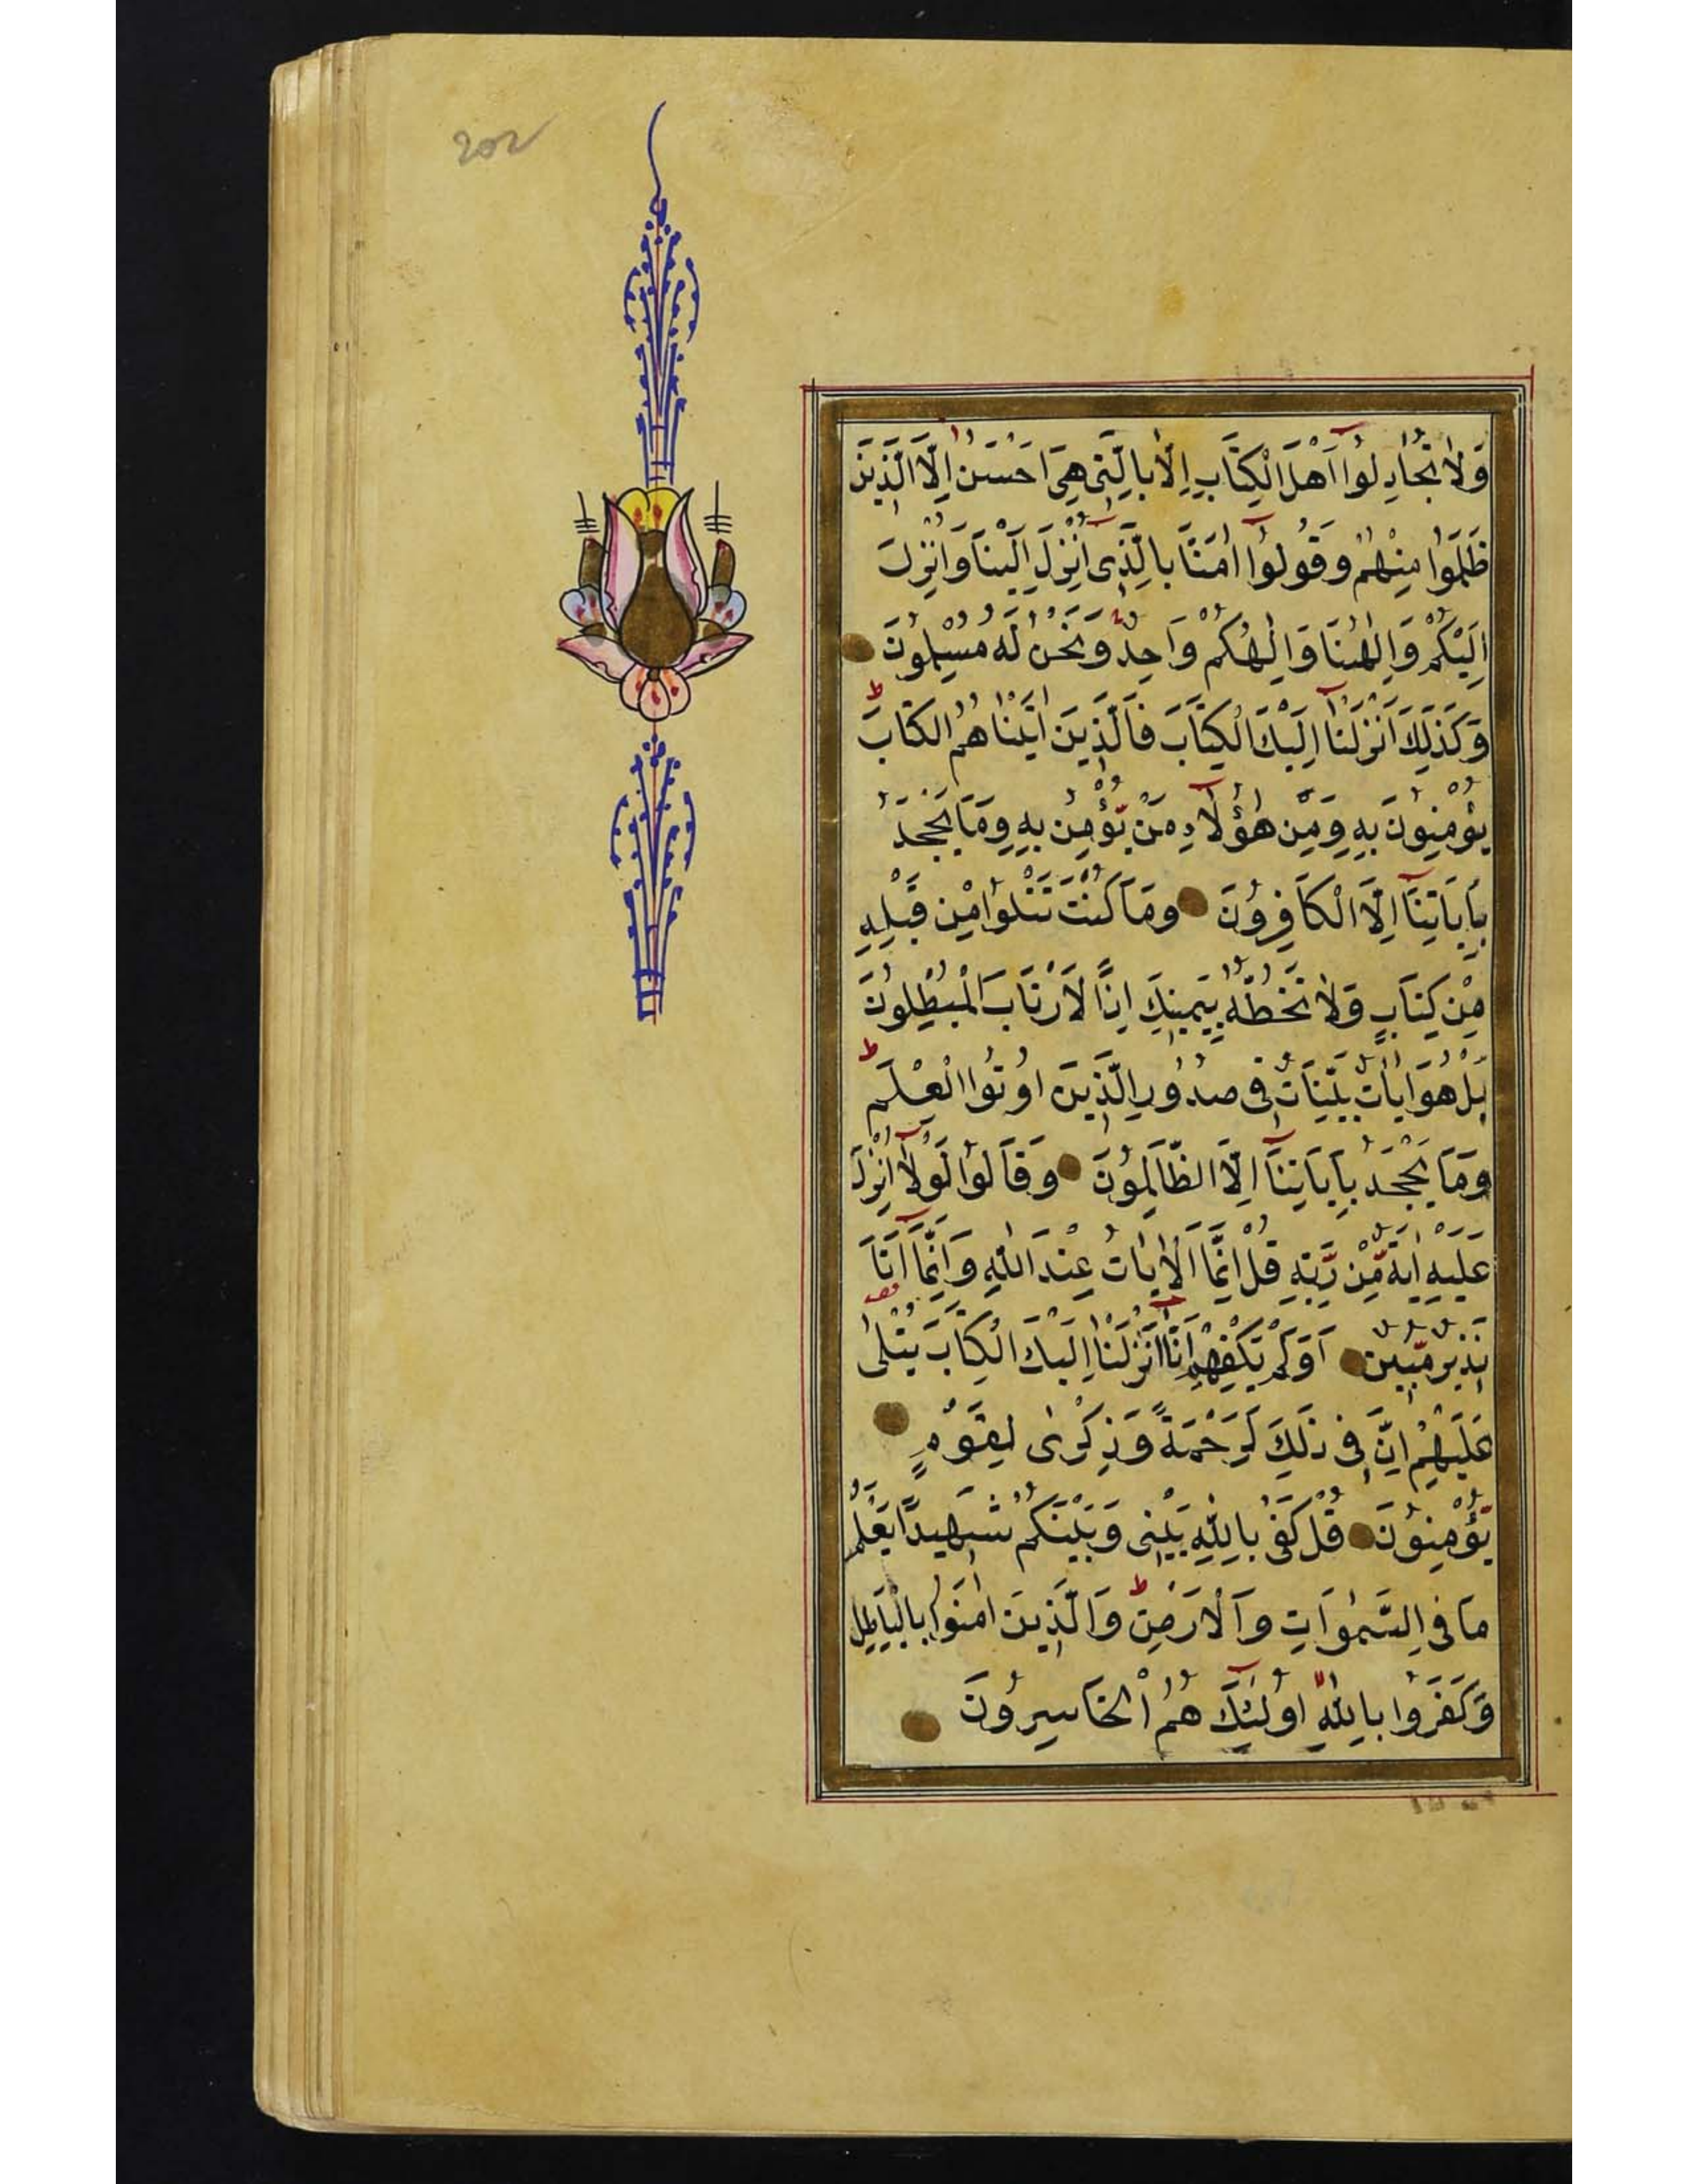 202
وَلَا تُجَادِلُوا اَهْلَ الْكِتَابِ اِلَّا بِالَّتِى هِىَ اَحْسَنُ اِلَّا الَّذِينَ
ظَلَمُوا مِنْهُمْ وَقُولُوا اٰمَنَّا بِالَّذِى اُنْزِلَ اِلَيْنَا وَاُنْزِلَ
اِلَيْكُمْ وَاِلٰهُنَا وَاِلٰهُكُمْ وَاحِدٌ وَنَحْنُ لَهُ مُسْلِمُونَ
وَكَذٰلِكَ اَنْزَلْنَا اِلَيْكَ الْكِتَابَ فَالَّذِينَ اٰتَيْنَاهُمُ الْكِتَابَ
يُؤْمِنُونَ بِهِ وَمِنْ هٰؤُلَاءِ مَنْ يُؤْمِنُ بِهِ وَمَا يَجْحَدُ
بِاٰيَاتِنَا اِلَّا الْكَافِرُونَ وَمَا كُنْتَ تَتْلُوا مِنْ قَبْلِهِ
مِنْ كِتَابٍ وَلَا تَخُطُّهُ بِيَمِينِكَ اِذًا لَارْتَابَ الْمُبْطِلُونَ
بَلْ هُوَ اٰيَاتٌ بَيِّنَاتٌ فِى صُدُورِ الَّذِينَ اُوتُوا الْعِلْمَ
وَمَا يَجْحَدُ بِاٰيَاتِنَا اِلَّا الظَّالِمُونَ وَقَالُوا لَوْلَا اُنْزِلَ
عَلَيْهِ اٰيَةٌ مِّنْ رَّبِّهِ قُلْ اِنَّمَا الْاٰيَاتُ عِنْدَ اللّٰهِ وَاِنَّمَا اَنَا
نَذِيرٌ مُّبِينٌ اَوَلَمْ يَكْفِهِمْ اَنَّا اَنْزَلْنَا اِلَيْكَ الْكِتَابَ يُتْلٰى
عَلَيْهِمْ اِنَّ فِى ذٰلِكَ لَرَحْمَةً وَذِكْرٰى لِقَوْمٍ
يُّؤْمِنُونَ قُلْ كَفٰى بِاللّٰهِ بَيْنِى وَبَيْنَكُمْ شَهِيدًا يَعْلَمُ
مَا فِى السَّمٰوَاتِ وَالْاَرْضِ وَالَّذِينَ اٰمَنُوا بِالْبَاطِلِ
وَكَفَرُوا بِاللّٰهِ اُولٰئِكَ هُمُ الْخَاسِرُونَ